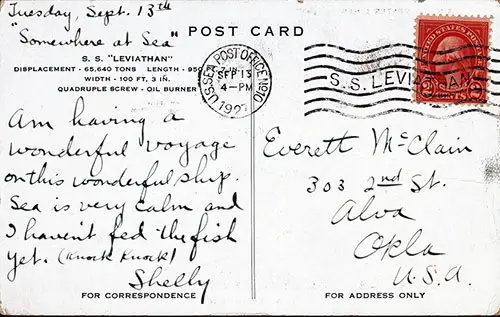 Tuesday, Sept. 13th
"Somewhere at Sea"
POST CARD
S. S. "LEVIATHAN"
DISPLACEMENT - 65,640 TONS LENGTH - 950
WIDTH - 100 FT. 3 IN.
QUADRUPLE SCREW - OIL BURNER
U.S. SEA POST OFFICE
SEP 13
4-PM
1927
S.S. LEVIATHAN
UNITED STATES POSTAGE
2 CENTS 2
Am having a
wonderful voyage
on this wonderful ship.
Sea is very calm and
I haven't fed the fish
yet. (Knock Knock)
Shelly
FOR CORRESPONDENCE
Everett McClain
303 2nd St.
Alva
Okla
U.S.A.
FOR ADDRESS ONLY